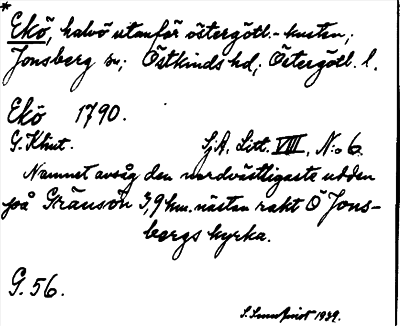 *
Ekö, halvö utanför östergötl.-kusten,
Jonsberg sn; Östkinds hd, Östergötl. l.
Ekö 1790.
G. Klint. SjA. Litt. VIII, N:o 6.
Namnet avsåg den nordvästligaste udden
på Gränsön 3,9 km. nästan rakt Ö Jons-
bergs kyrka.
G. 56.
1939.